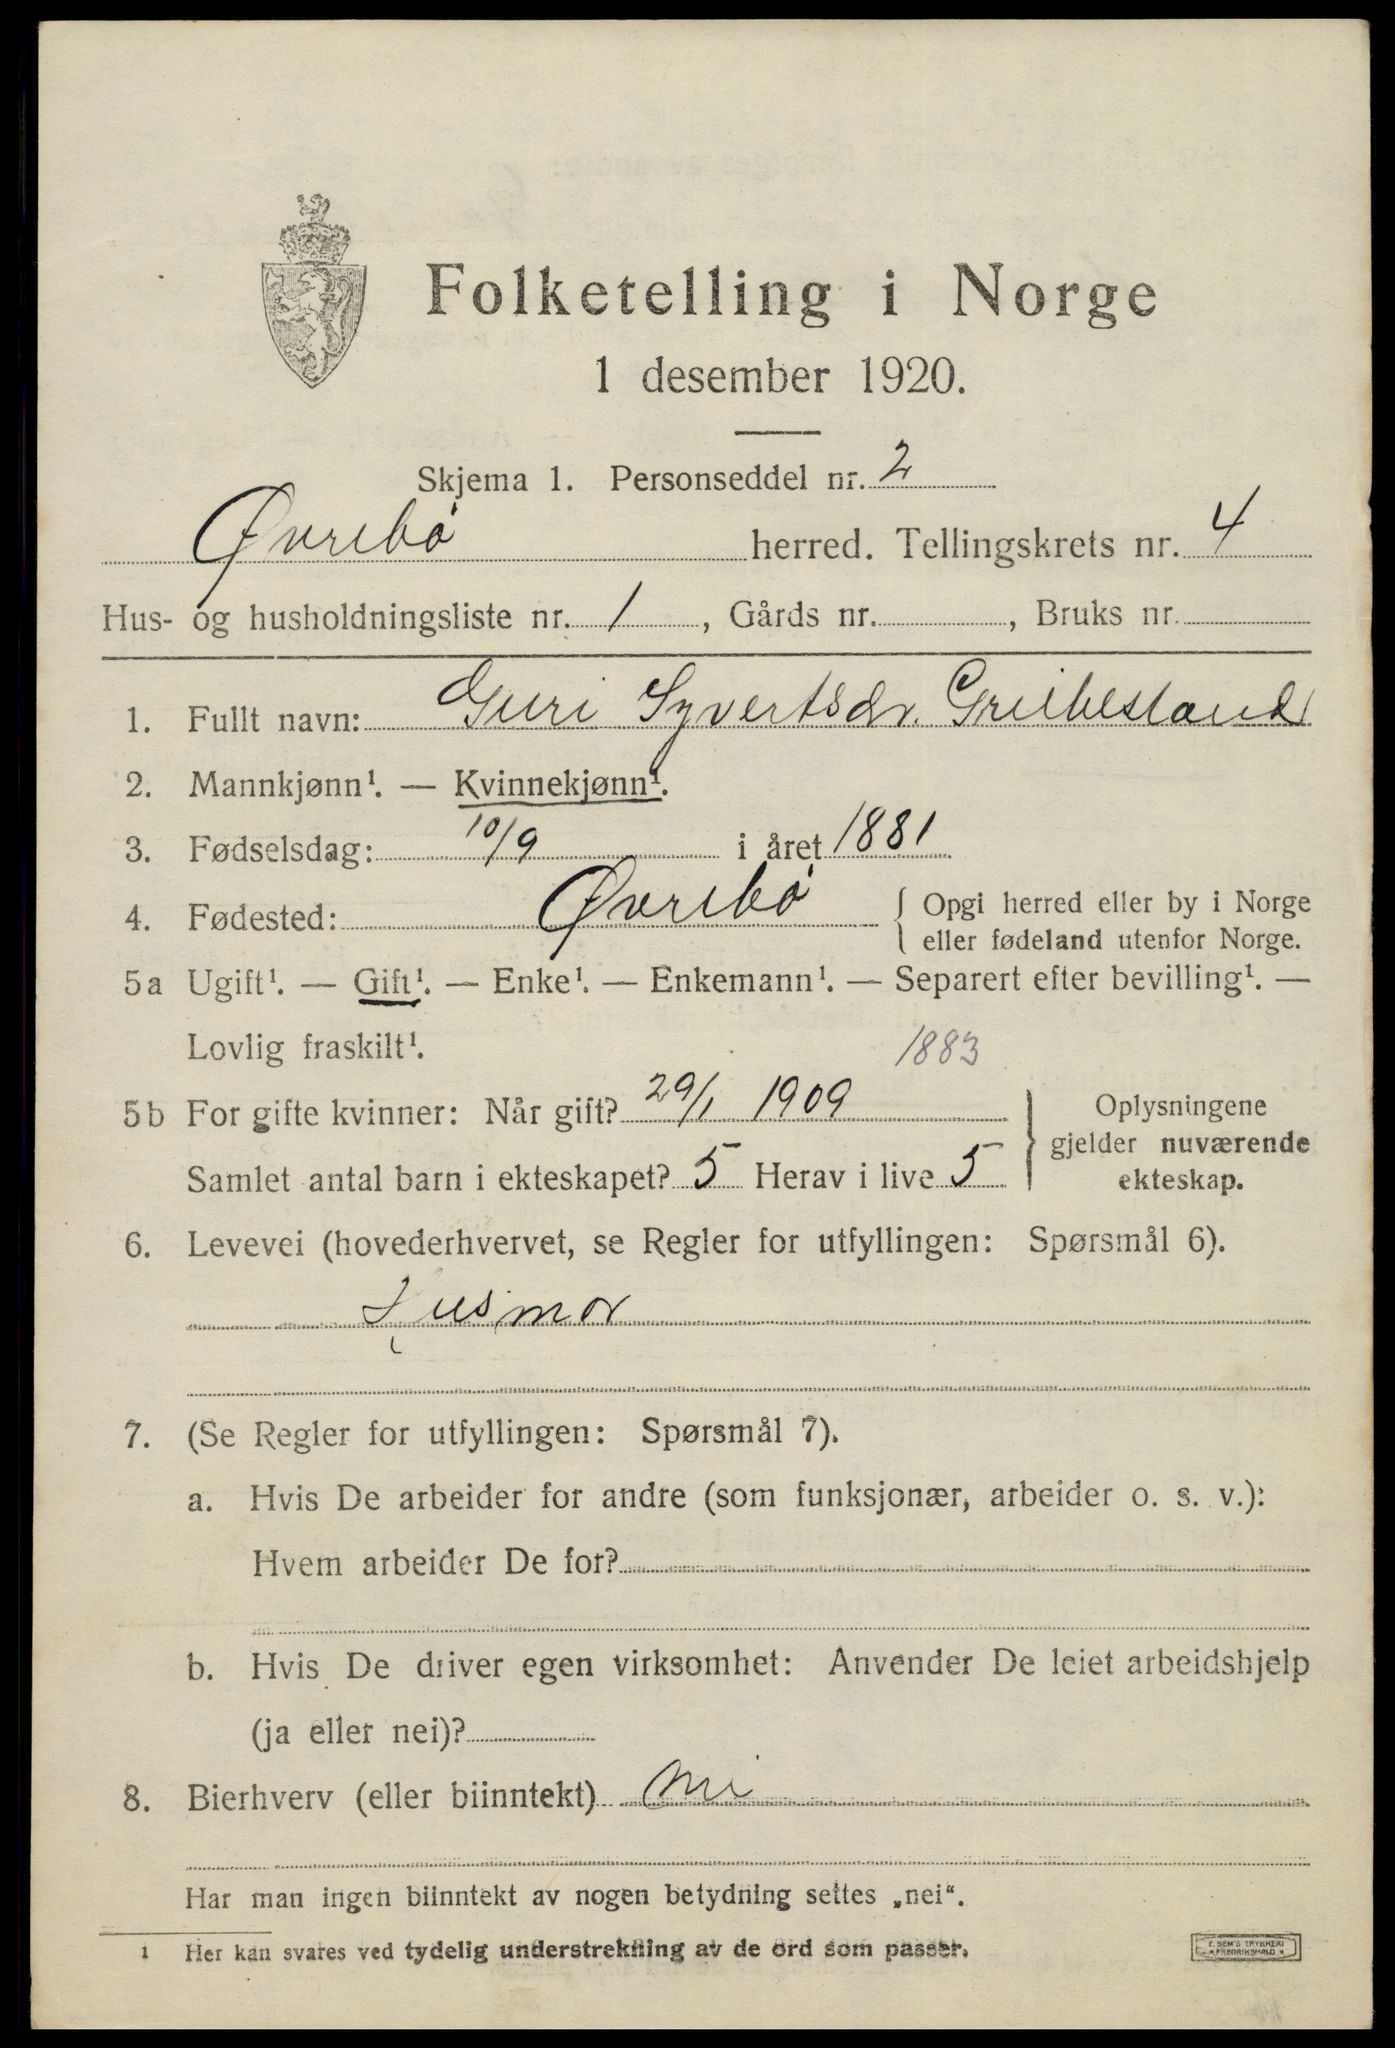 Folketelling i Norge
1 desember 1920.
Skjema 1. Personseddel nr. 2
Øvrebø herred. Tellingskrets nr. 4
Hus- og husholdningsliste nr. 1, Gårds nr. , Bruks nr.
1. Fullt navn: Guri Syvertsdr. Greibesland
2. Mannkjønn¹. — Kvinnekjønn¹.
3. Fødselsdag: 10/9 i året 1881
4. Fødested: Øvrebø { Opgi herred eller by i Norge
eller fødeland utenfor Norge.
5a Ugift¹. — Gift¹. — Enke¹. — Enkemann¹. — Separert efter bevilling¹. —
Lovlig fraskilt¹.
1883
5b For gifte kvinner: Når gift? 29/1 1909
Samlet antal barn i ekteskapet? 5 Herav i live 5
} Oplysningene
gjelder nuværende
ekteskap.
6. Levevei (hovederhvervet, se Regler for utfyllingen: Spørsmål 6).
Husmor
7. (Se Regler for utfyllingen: Spørsmål 7).
a. Hvis De arbeider for andre (som funksjonær, arbeider o. s. v.):
Hvem arbeider De for?
b. Hvis De driver egen virksomhet: Anvender De leiet arbeidshjelp
(ja eller nei)?
8. Bierhverv (eller biinntekt) nei
Har man ingen biinntekt av nogen betydning settes „nei“.
1 Her kan svares ved tydelig understrekning av de ord som passer.
E. SEM'S TRYKKERI
FREDRIKSHALD